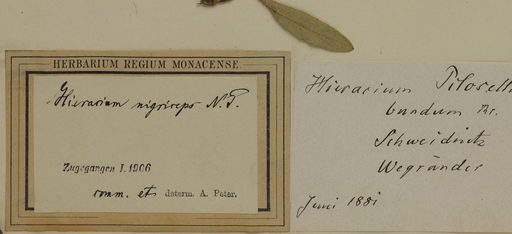 HERBARIUM REGIUM MONACENSE.
Hieracium nigriceps N. P.
Zugegangen I. 1906
comm. et determ. A. Peter.
Hieracium Pilosell
bundum
Schweidnitz
Wegränder
Juni 1881